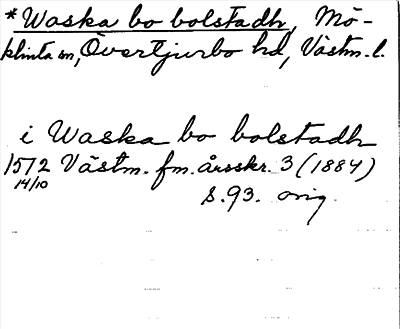 *Waska bo bolstadh, Mö-
klinta sn, Övertjurbo hd, Västm. l.
i Waska bo bolstadh
1572 Västm. fm. årsskr. 3 (1884)
14/10
s. 93. orig.